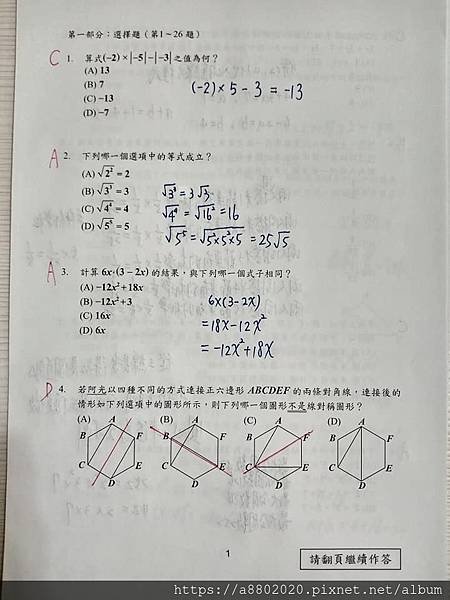 第一部分：選擇題（第1～26題）
C 1. 算式(−2)×|−5|−|−3|之值為何？
(A) 13
(B) 7
(C) −13
(D) −7
(-2)×5-3 = -13
A 2. 下列哪一個選項中的等式成立？
(A) √2² = 2
(B) √3³ = 3
(C) √4⁴ = 4
(D) √5⁵ = 5
√3³ = 3√3
√4⁴ = √16² = 16
√5⁵ = √5²×5²×5 = 25√5
A 3. 計算 6x·(3 − 2x) 的結果，與下列哪一個式子相同？
(A) −12x² + 18x
(B) −12x² + 3
(C) 16x
(D) 6x
6x(3-2x)
= 18x-12x²
= -12x²+18x
D 4. 若阿光以四種不同的方式連接正六邊形 ABCDEF 的兩條對角線，連接後的
情形如下列選項中的圖形所示，則下列哪一個圖形不是線對稱圖形？
(A) (B) (C) (D)
A A A A
B F B F B F B F
C E C E C E C E
D D D D
1
請翻頁繼續作答
https://a8802020.pixnet.net/album